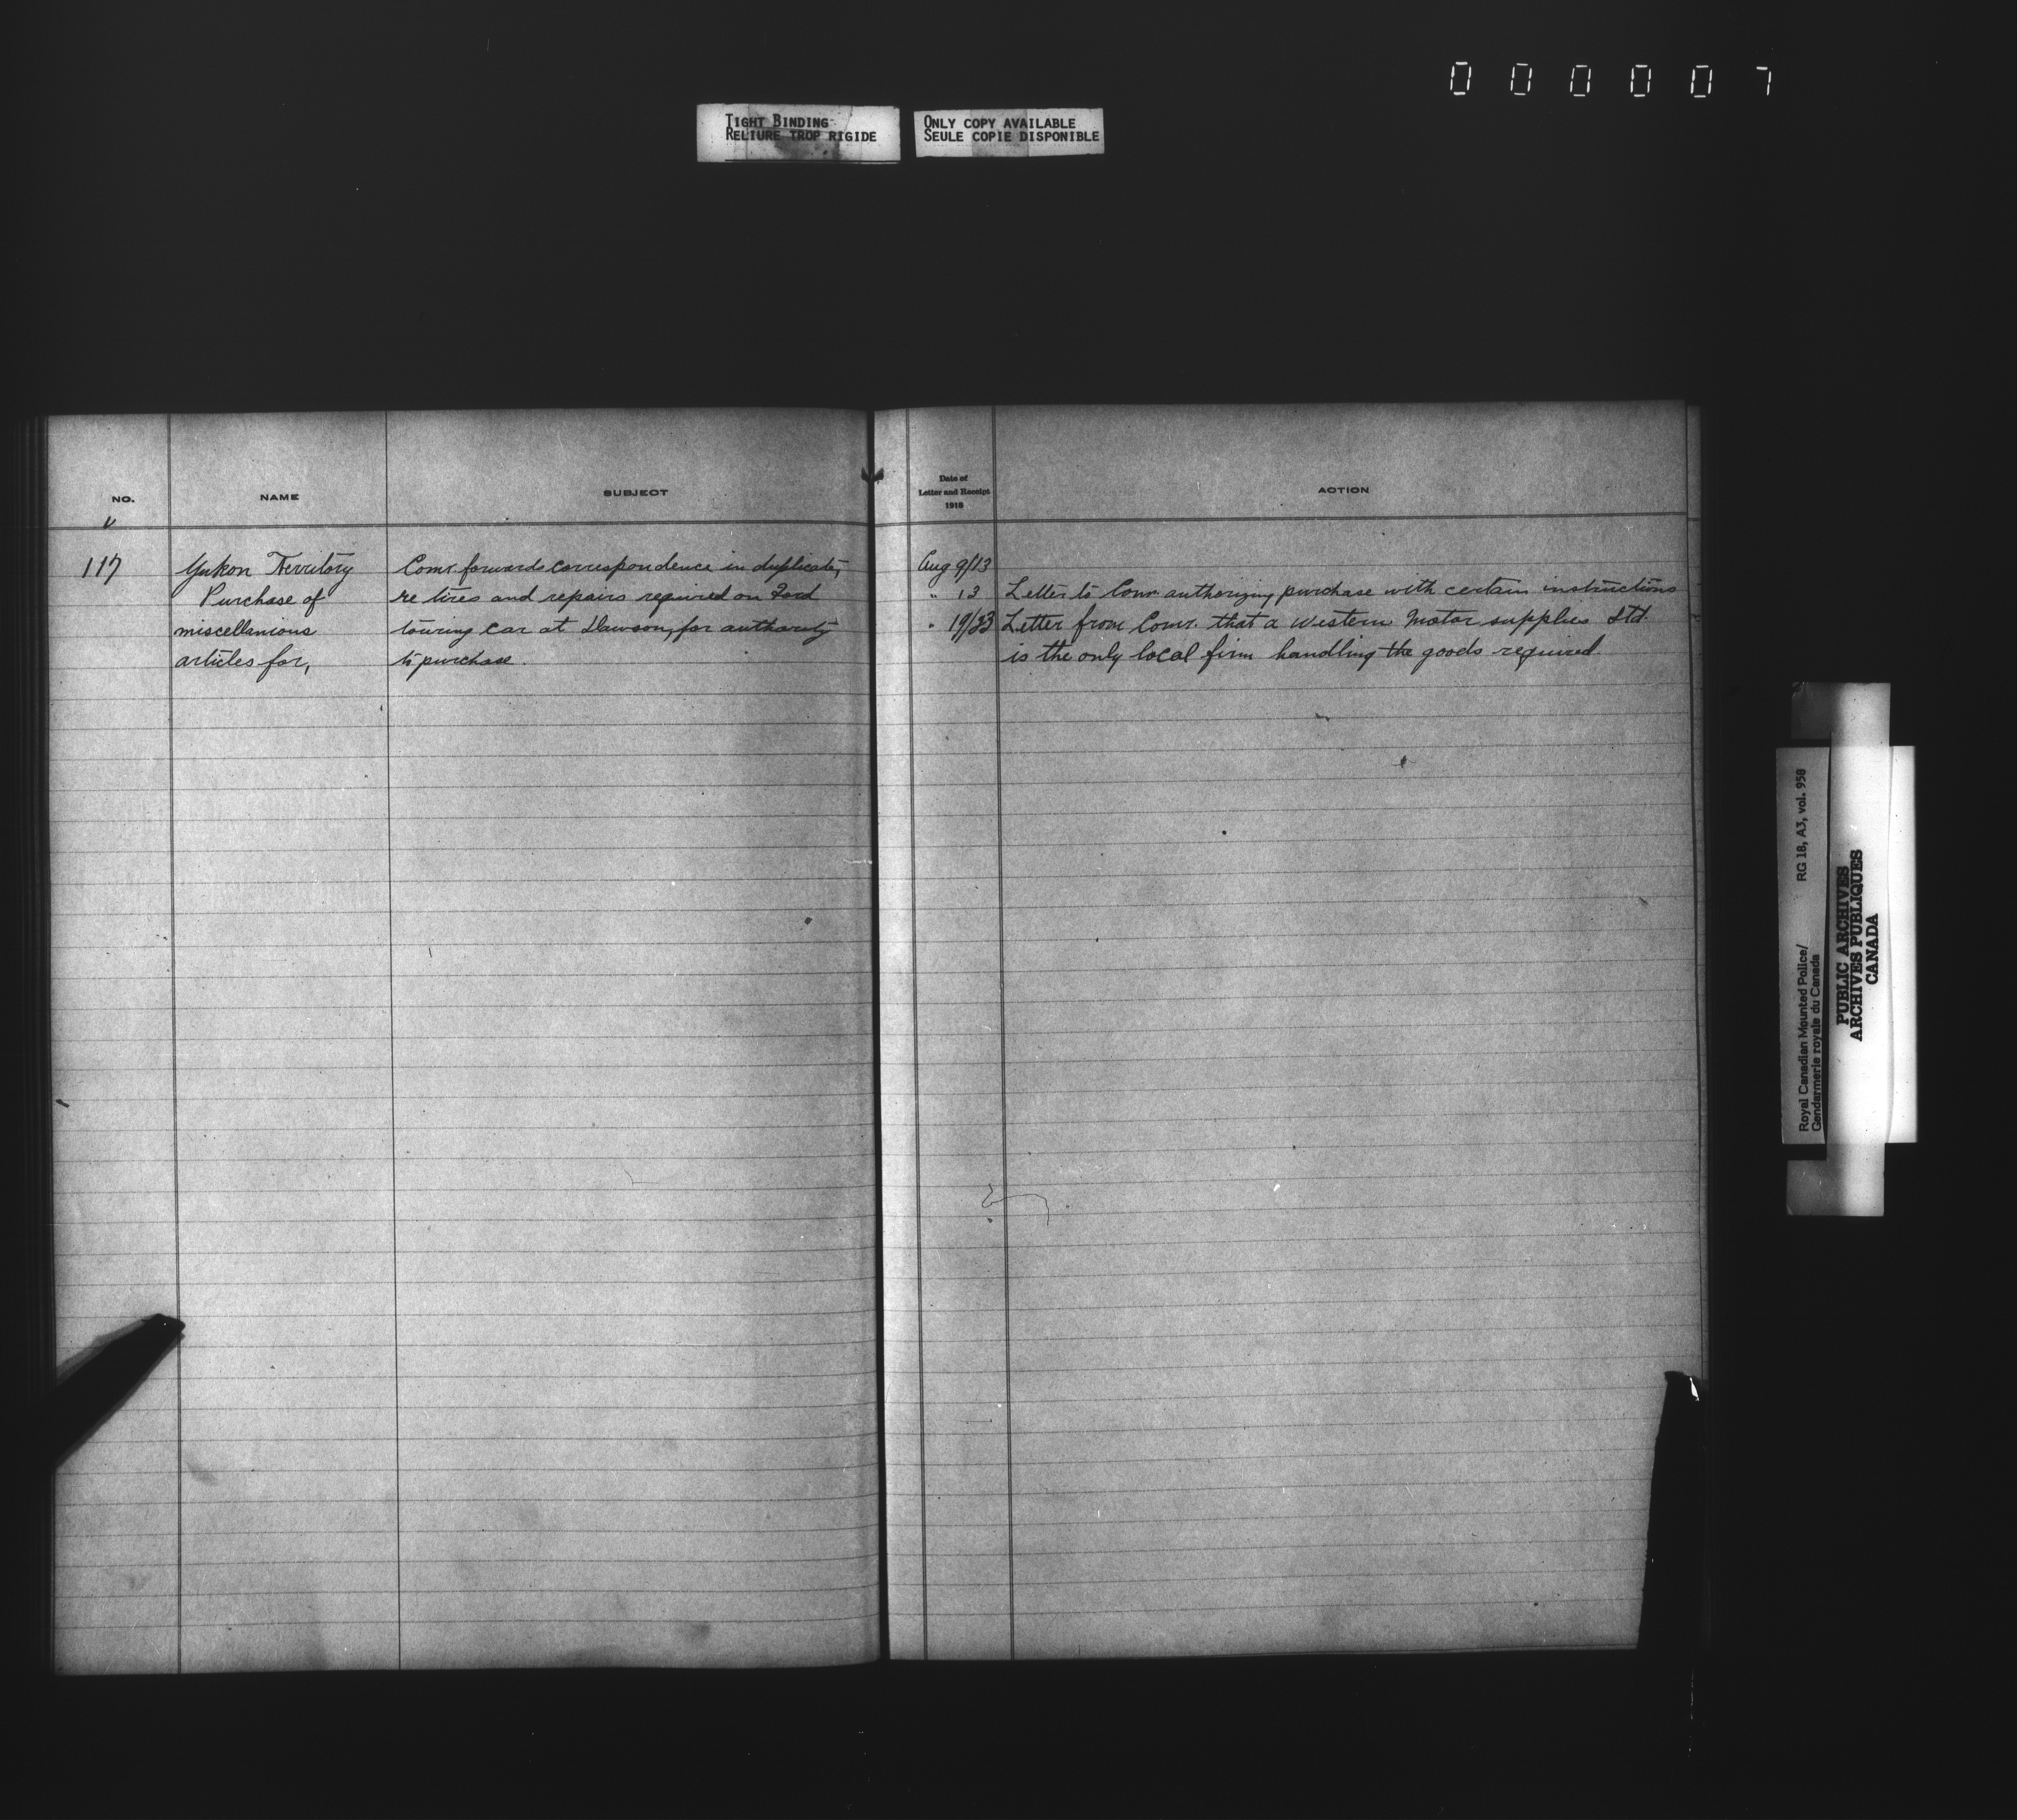 0 0 0 0 0 7
TIGHT BINDING
RELIURE TROP RIGIDE
ONLY COPY AVAILABLE
SEULE COPIE DISPONIBLE
NO.
NAME
SUBJECT
Date of
Letter and Receipt
1918
ACTION
117
Yukon Territory
Purchase of
miscellanious
articles for,
Comr. forwards correspondence in duplicate,
re tires and repairs required on Ford
touring car at Dawson, for authority
to purchase.
Aug 9/13
" 13 Letter to Comr authorizing purchase with certain instructions
" 19/23 Letter from Comr. that a Western Motor supplies Ltd.
is the only local firm handling the goods required.
Royal Canadian Mounted Police/
Gendarmerie royale du Canada
RG 18, A3, vol. 958
PUBLIC ARCHIVES
ARCHIVES PUBLIQUES
CANADA